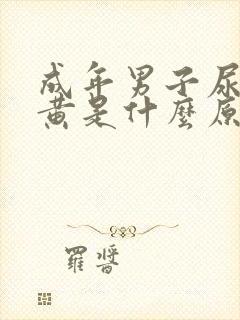 成年男子尿
黄是什麼原
羅晉